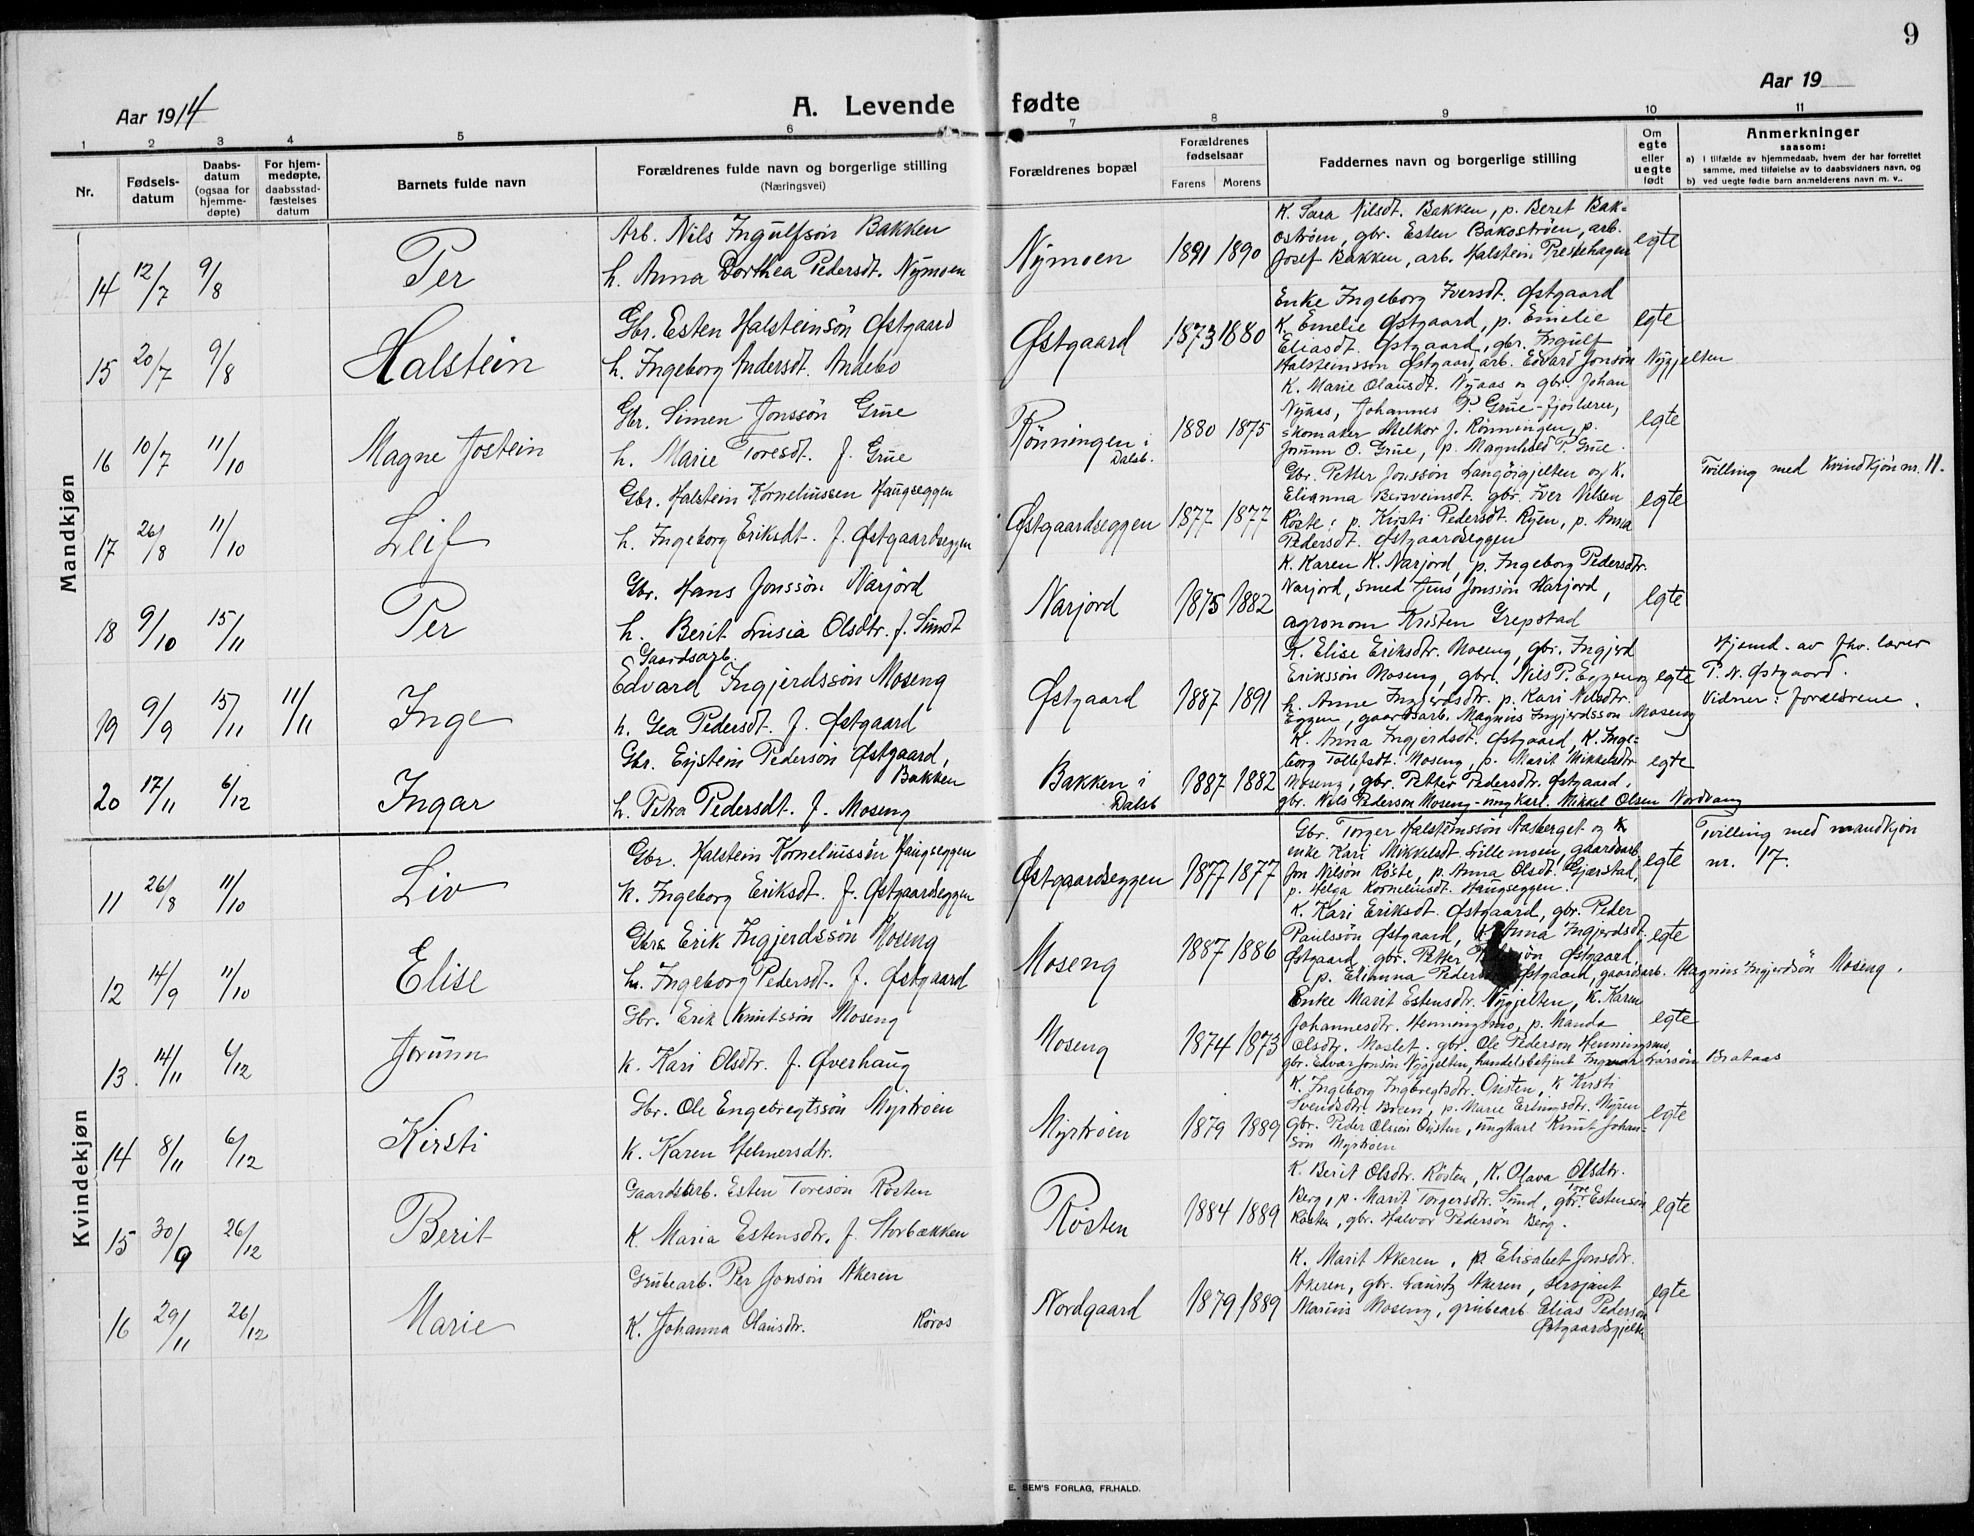 9
Aar 1914
A. Levende fødte
Aar 19
1 2 3 4 5 6 7 8 9 10 11
Nr.
Fødsels-
datum
Daabs-
datum
(ogsaa for
hjemme-
døpte)
For hjem-
medøpte,
daabsstad-
fæstelses
datum
Barnets fulde navn
Forældrenes fulde navn og borgerlige stilling
(Næringsvei)
Forældrenes bopæl
Forældrenes
fødselsaar
Farens Morens
Faddernes navn og borgerlige stilling
Om
egte
eller
uegte
født
Anmerkninger
saasom:
a) I tilfælde av hjemmedaab, hvem der har forrettet
samme, med tilføielse av to daabsvidners navn, og
b) ved uegte fødte barn anmelderens navn m. v..
Mandkjøn
14 12/7 9/8 Per
Arb. Nils Ingulfsøn Bakken
h. Anna Dorthea Pedersdt. Nymoen
Nymoen 1891 1890
K. Sara Nilsdt. Bakken, p. Beret Bak-
oströen, gbr. Esten Bakoströen, arb.
Josef Bakken, arb. Halstein Prestehagen
egte
15 20/7 9/8 Halstein
Gbr. Esten Halsteinsön Østgaard
h. Ingeborg Andersdt. Andebo
Østgaard 1873 1880
Enke Ingeborg Iversdt. Østgaard
K. Emelie Østgaard, p. Emelie
Eliasdt. Østgaard, gbr. Ingulf
Halsteinssön Østgaard, arb. Edvard Jonsön Nygjelten
egte
16 10/7 11/10 Magne Jostein
Gbr. Simen Jonssön Grue
h. Marie Toresdt. f. Grue
Rönningen i
Dalsb.
1880 1875
K. Marie Olausdt. Nyaas og gbr. Johan
Nyaas, Johannes P. Grue - fjoslærer,
skomaker Melkor J. Rönningen, p.
Jorunn O. Grue, p. Magnhild P. Grue.
egte
17 26/8 11/10 Leif
Gbr. Halstein Korneliussen Haugseggen
h. Ingeborg Eriksdt. f. Østgaardseggen
Østgaardseggen 1877 1877
Gbr. Petter Jonssön Langøigjelten og K.
Elianna Bersveinsdt. gbr. Iver Nilsen
Röste; p. Kirsti Pedersdt. Ryen, p. Anna
Pedersdt. Østgaardseggen
egte
Tvilling med Kvindkjøn nr. 11.
18 9/10 15/11 Per
Gbr. Hans Jonssön Narjord
h. Berit Lusia Olsdtr. f. Sundt
Narjord 1875 1882
K. Karen K. Narjord, p. Ingeborg Pedersdtr.
Narjord, smed Jens Jonssön Narjord,
agronom Kristen Grepstad
egte
19 9/9 15/11 11/11 Inge
Gaardsarb.
Edvard Ingjerdssön Moseng
h. Gea Pedersdt. f. Østgaard
Østgaard 1887 1891
K. Elise Eriksdtr. Moseng, gbr. Ingjerd
Erikssön Moseng, gbr. Nils P. Eggen og
h. Anne Ingjerdsdtr. p. Kari Nilsdtr.
Eggen, gaardsarb. Magnus Ingjerdsson Moseng
egte
Hjemd. av fhv. lærer
P. N. Østgaard.
Vidner: forældrene.
20 17/11 6/12 Ingar
Gbr. Eystein Pedersön Østgaard,
Bakken
h. Petra Pedersdt. f. Moseng
Bakken i
Dalsb
1887 1882
K. Anna Ingjerdsdt. Østgaard, K. Inge-
borg Tollefsdt. Moseng, p. Marit Mikkelsdtr
Moseng, gbr. Petter Pedersdtr. Østgaard,
gbr. Nils Pederson Moseng - ungkarl. Mikkel Olsen Nordvang
egte
Kvindekjøn
11 26/8 11/10 Liv
Gbr. Halstein Korneliussön Haugseggen
h. Ingeborg Eriksdt. f. Østgaardseggen
Østgaardseggen 1877 1877
Gbr. Torger Halsteinssön Aasberget og K
enke Kari Mikkelsdt. Lillemoen, gaardsarb.
Jon Nilsön Röste, p. Anna Olsdt. Gjærstad,
p. Helga Korneliusdt. Haugseggen.
egte
Tvilling med mandkjön
nr. 17.
12 14/9 11/10 Elise
Gbr. Erik Ingjerdssön Moseng
h. Ingeborg Pedersdt. f. Østgaard
Moseng 1887 1886
K. Kari Eriksdt. Østgaard, gbr. Peder
Paulssön Østgaard, Anna Ingjerdsdt.
Østgaard, gbr. Petter Østgaard,
p. Elianna Peders Østgaard, gaardsarb. Magnus Ingjerdsön Moseng.
egte
13 14/11 6/12 Jorunn
Gbr. Erik Knutssön Moseng
K. Kari Olsdtr. f. Øverhaug
Moseng 1874 1873
Enke Marit Estensdtr. Nygjelten, K. Karen
Johannesdtr. Henningsmo, p. Manda
Olsdtr. Moslet. gbr. Ole Pederson Henningsmo,
gbr. Edvar Jonsön Nygjelten, handelsbetjent Ingvar Larsön Brataas
egte
14 8/11 6/12 Kirsti
Gbr. Ole Engebregtssön Myrtröen
K. Karen Helmersdtr.
Myrtröen 1879 1889
K. Ingeborg Ingbregtsdtr. Ousten, K Kirsti
Svendsdtr. Broen, p. Marie Erlingsdtr. Myren
gbr. Peder Olssön Ousten, ungkarl Knut Johan-
sön Myrtröen
egte
15 30/9 26/12 Berit
Gaardsarb. Esten Toresön Rösten
K. Maria Estensdtr. f. Storbækken
Rösten 1884 1889
K. Berit Olsdtr. Rösten, K. Olava Olsdtr.
Berg, p. Marit Torgersdtr. Sund, gbr. Tore Estensön
Rösten, gbr. Halvor Pedersön Berg.
egte
16 29/11 26/12 Marie
Grubearb. Per Jonsön Akeren
K. Johanna Olausdtr. Röros
Nordgaard 1879 1889
K. Marit Akeren, p. Elisabet Jonsdtr.
Akeren, gbr. Lauritz Akeren, sersjant
Marius Moseng, grubearb Elias Pedersön
Østgaardsgjelten
egte
E. SEM'S FORLAG, FR.HALD.